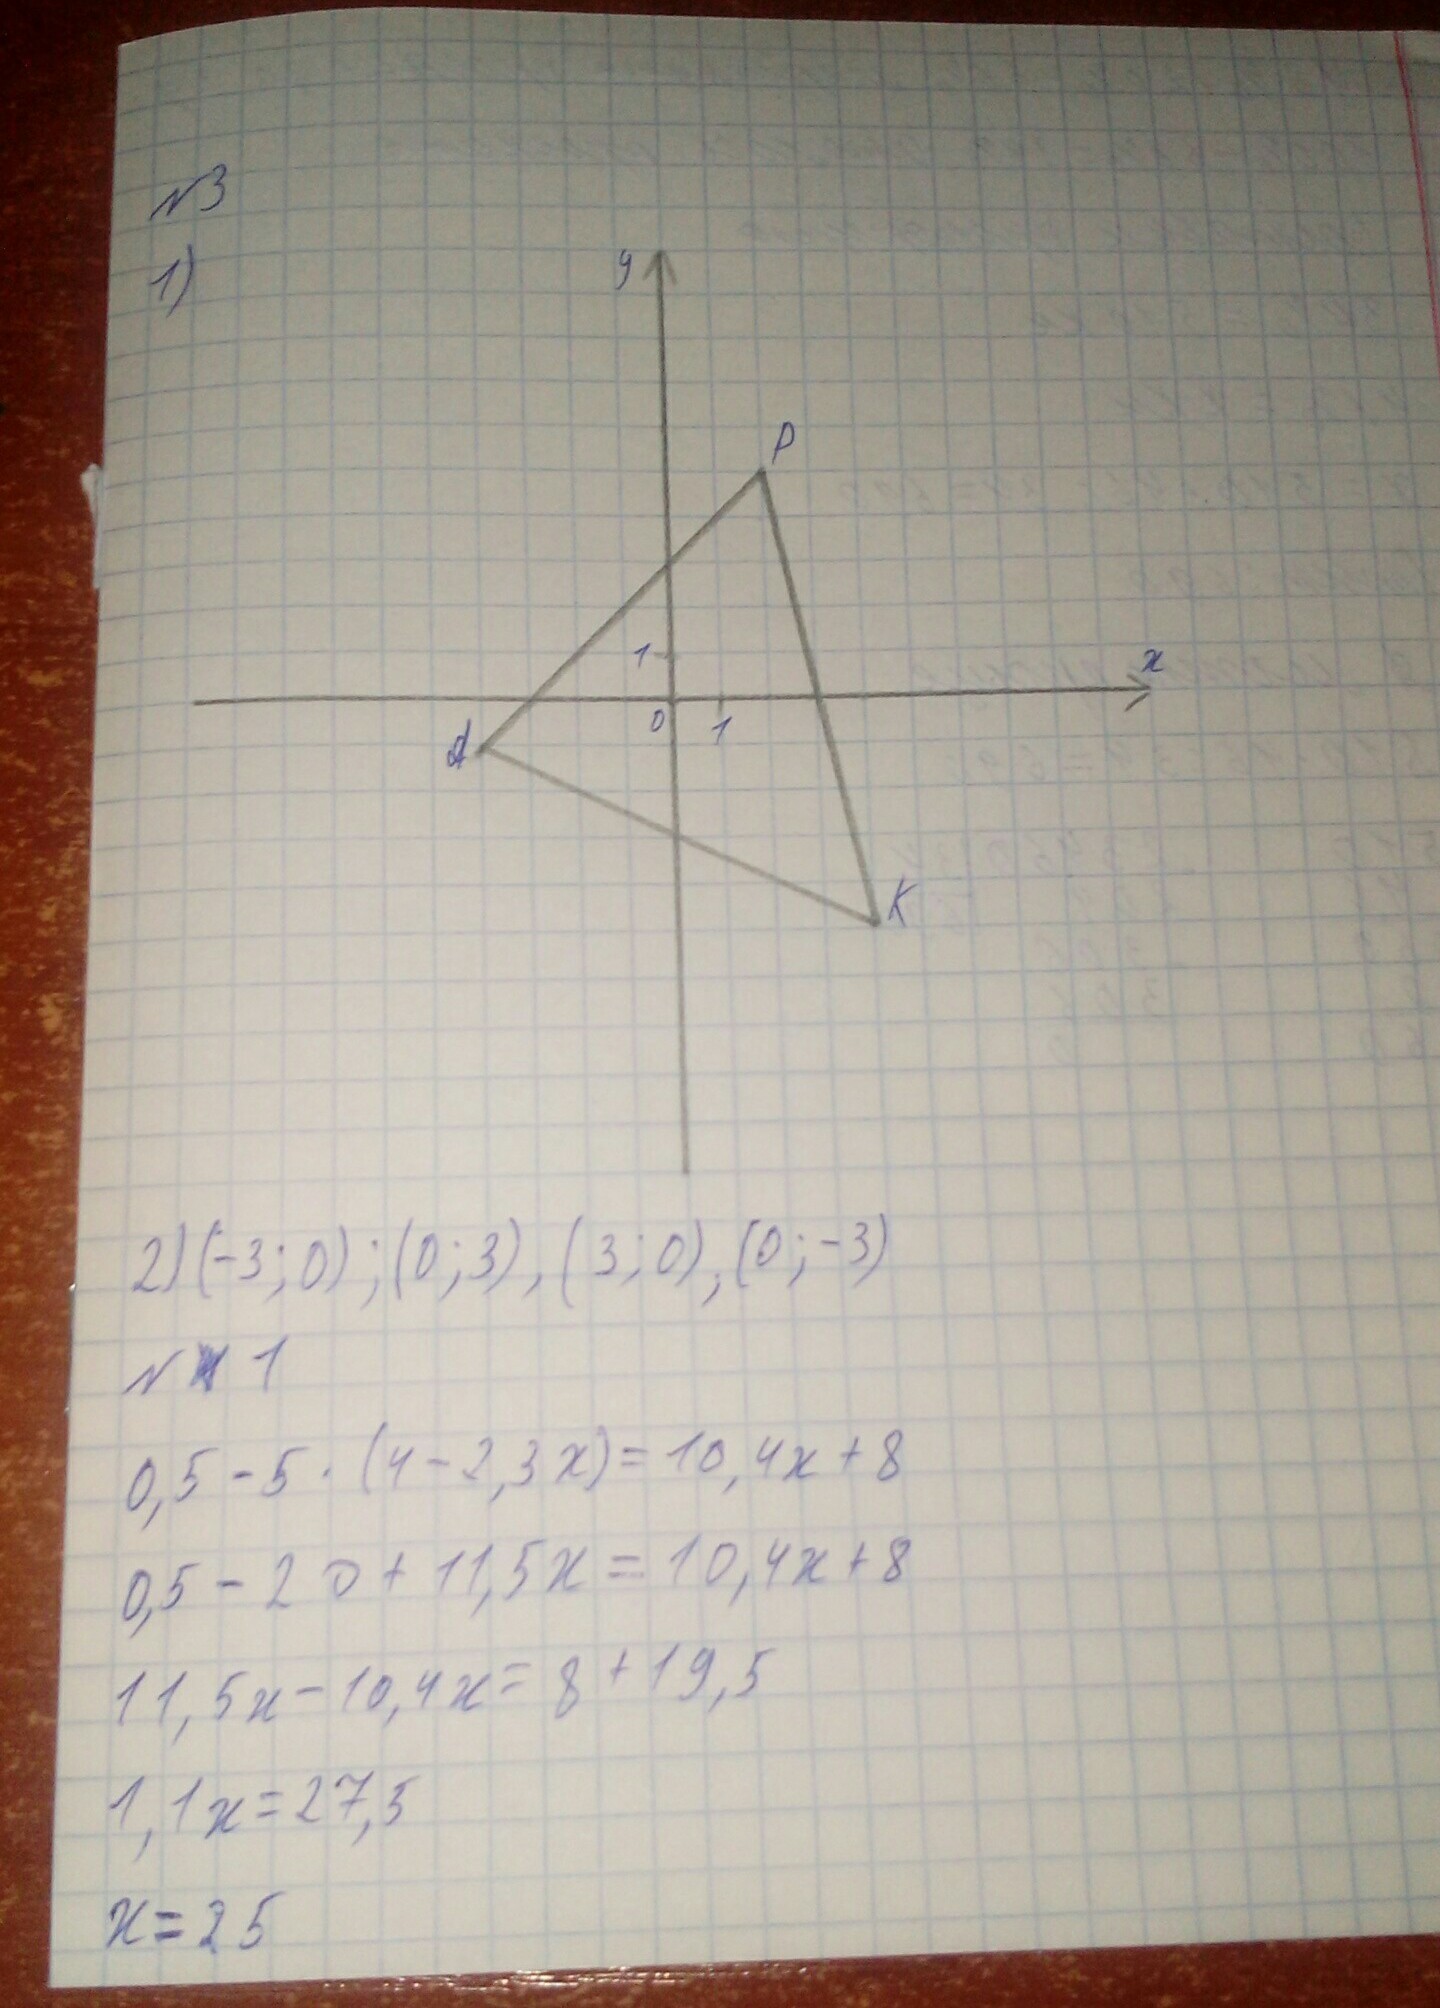 №3
1)
y
P
1
x
0
1
A
K
2) (-3; 0) ; (0; 3), (3; 0), (0; -3)
№ 1
0,5 - 5 · (4 - 2,3x) = 10,4x + 8
0,5 - 20 + 11,5x = 10,4x + 8
11,5x - 10,4x = 8 + 19,5
1,1x = 27,5
x = 25